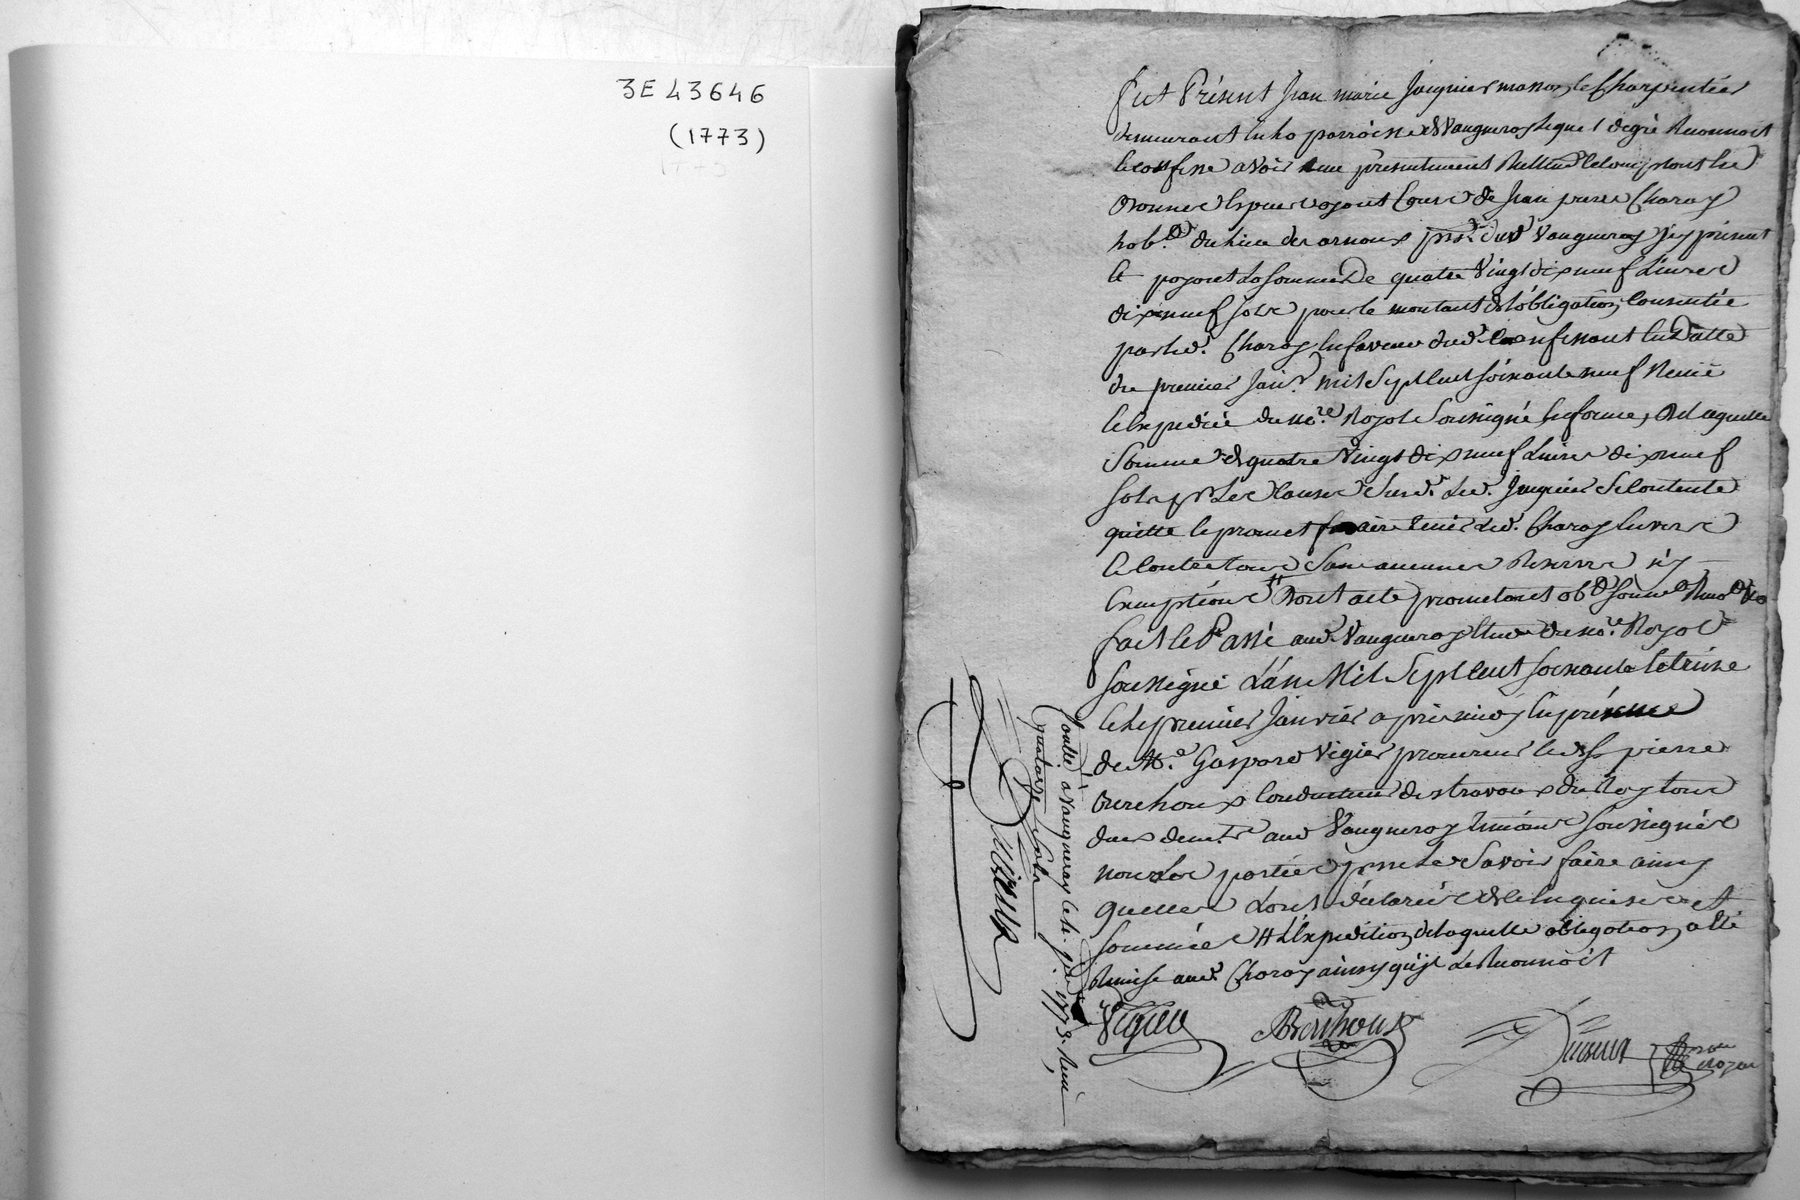 3E 43646
(1773)
fut Présent Jean marie Jacquier masson et Charpentier
demeurant en la parroisse de Vaugneray lequel de gré Reconnoit
et confesse avoir eue presentement Reellement
ayant Cours de Jean pierre Charay
hab.t du lieu des arnoux prs.e dud Vaugneray icy présent
et payant la somme de quatre Vingt dix neuf Livres
dix neuf sols pour le montant de l'obligation Consentie
par led. Charay en faveur dud. Confessant en datte
du premier Janv.r mil Sept Cent soixante neuf Receüe
et Expediée du no.re Royal Soussigné en forme, De laquelle
Somme de quatre Vingt dix neuf Livres dix neuf
sols pr. Les Causes Susd. Led. Jacquier Se Contente
quitte et promet faire tenir Led. Charay Envers
et Contre tous Sans aucunes Reserve n'y
Exceptions # Dont acte promettant obd
fait et Passé aud. Vaugneray Etude du no.re Royal
soussigné L'an Mil Sept Cent soixante et treize
et le premier Janvier apres midy En présence
de M.e Gaspard Vigier procureur et de Sr pierre
Berthoux Conducteur des travaux du Roy tous
deux demt. aud Vaugneray temoins soussignés
non Les parties pour ne Le Savoir faire ainsy
quelles L'ont déclaré de ce Enquises et
sommées # L'Expedition de laquelle obligation a été
Remise aud. Charay ainsy qu'il Le Reconnoit
Vigier
Berthoux
Royal
Contlé à Vaugneray le 14. Janv. 1773. Reçu
quatorze sols